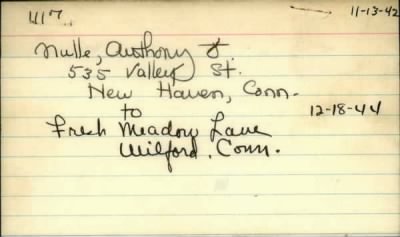 4117 11-13-42
Nulle, Anthony J
535 Valley St.
New Haven, Conn.
to 12-18-44
Fresh Meadow Lane
Milford, Conn.